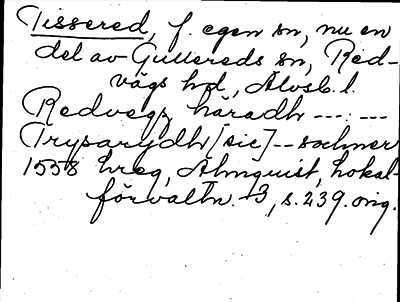 Tissered, f. egen sn, nu en
del av Gullereds sn, Red-
vägs hd, Älvsb. l.
Redvegz häradh --- ---
Trysarydh [sic] -- sochner
1558 hreg, Almquist, Lokal-
förvaltn. 3, s. 239. orig.